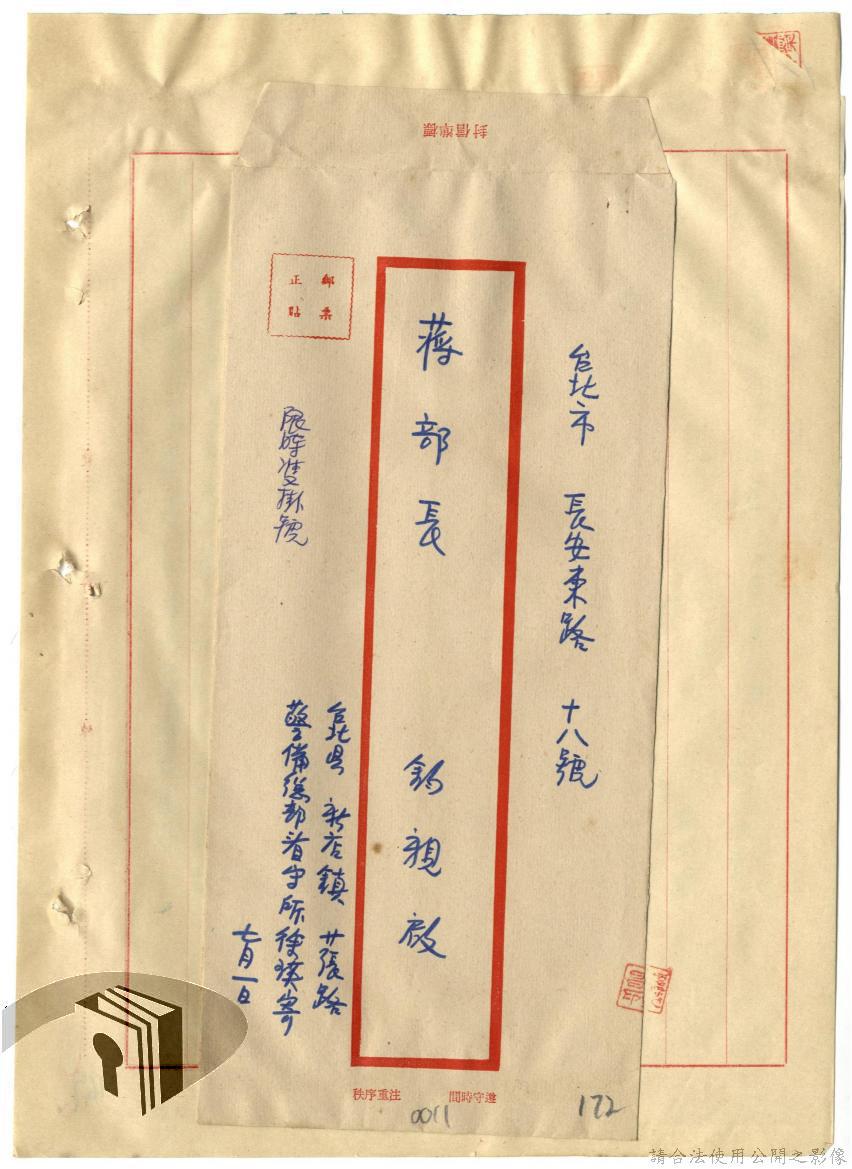 封信準標
郵票
正貼
台北市 長安東路 十八號
蔣部長 鈞親啟
限時雙掛號
台北县 新店鎮 廿張路
警備總部看守所徐瑛寄
七月一日
遵守時間
注重序秩
0011
172
請合法使用公開之影像